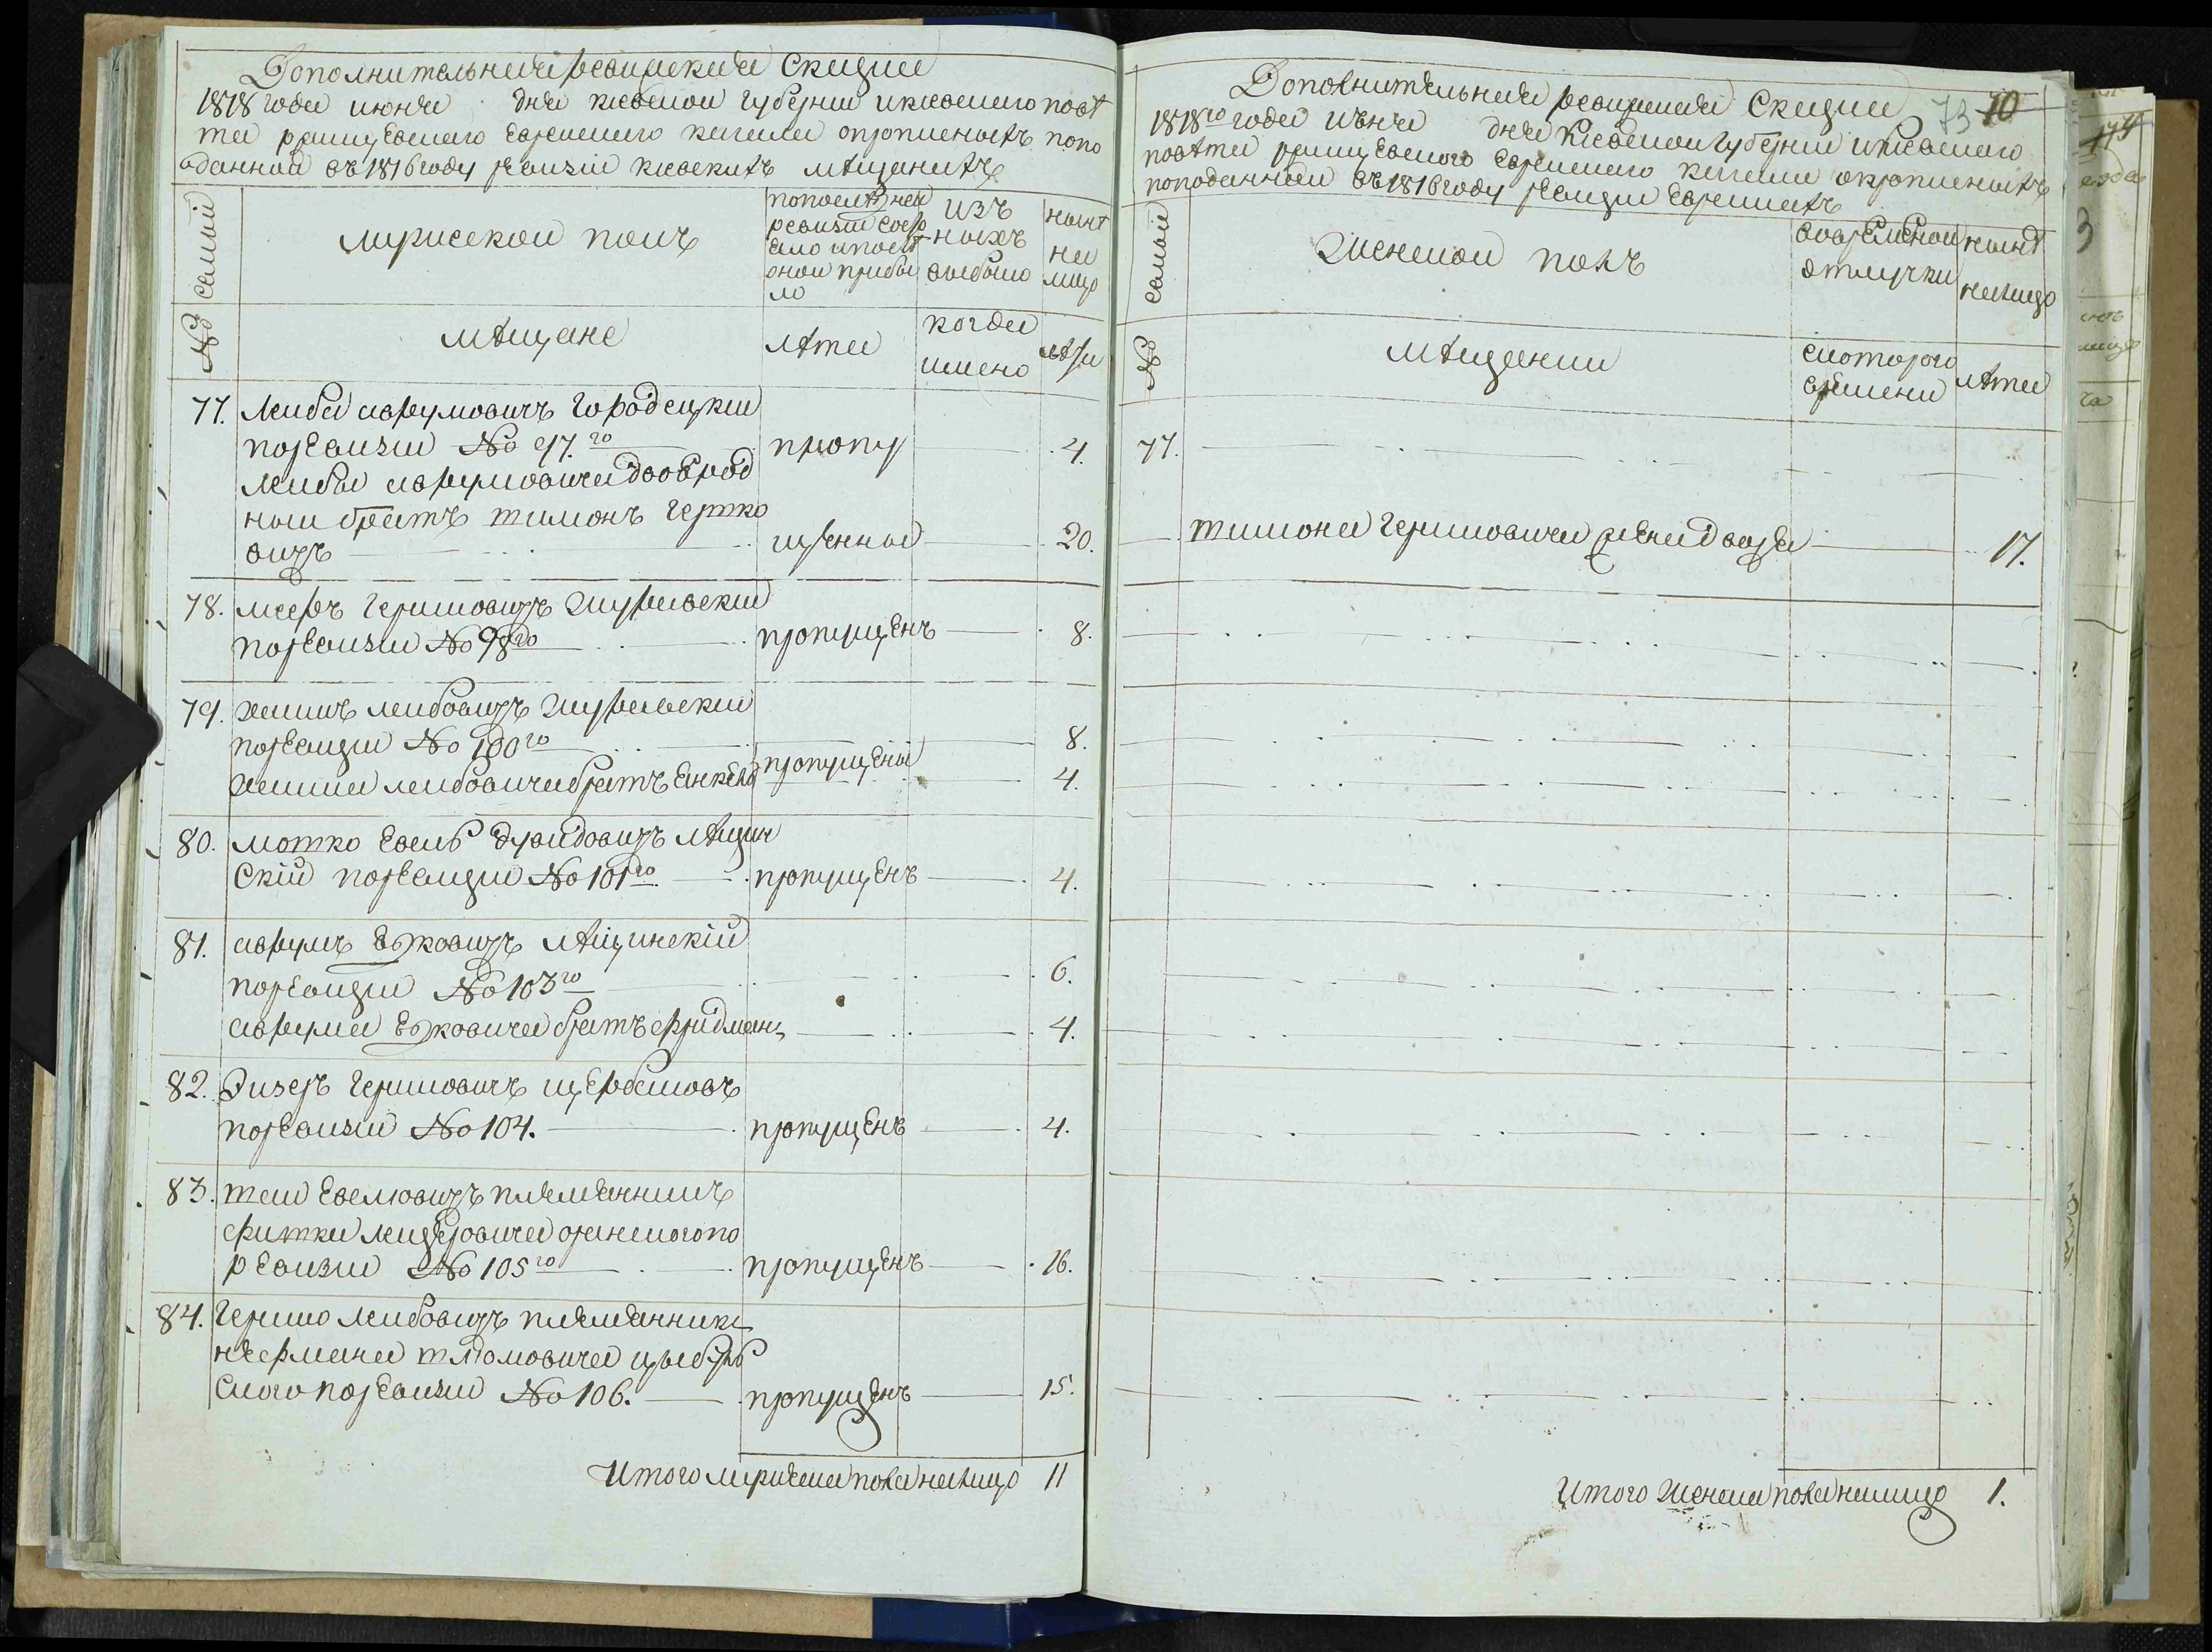 Дополнительная ревизская Сказка
1818 года июня дня киевской губернии и киевского повѣ
та ржищевского еврейского кагала о прописныхъ по по
данной въ 1816 году ревизіи киевскихъ мѣщанахъ
№ семьи
мужеской полъ
по послѣдней
ревизіи состо
яло и после
оной прибы
ло
изъ
ныхъ
выбыло
нынѣ
на
лицо
мѣщане
лѣта
когда
имено
лѣта
77. Лейба аврумовичъ городецкий
по ревизии № 97го пропу 4.
Лейбы аврумовича двоюрод
ный братъ тимонъ гершко
вичъ щенные 20.
78. мееръ гершковичъ журавский
по ревизии № 98го пропущенъ 8.
79. хаимъ лейбовичъ журавский
по ревизии № 100го 8.
хаима лейбовича братъ янкель пропущены 4.
80. мотко евель давидовичъ лѣщин
скій по ревизии № 101го пропущенъ 4.
81. аврумъ ежковичъ лѣщинскій
по ревизии № 103го 6.
аврума ежковича братъ фридманъ 4.
82. Эизеръ гершковичъ щербаковъ
по ревизии № 104. пропущенъ 4.
83. теи евелювичъ племянникъ
по
ревизии № 105го пропущенъ 16.
84. гершко лейбовичъ племянникъ
ского по ревизии № 106. пропущенъ 15.
Итого мужеска пола налицо 11
Дополнительная ревизская Сказка
73 70
1818го года июня дня киевской губернии и киевского
повѣта ржищевского еврейского кагала о прописныхъ
по поданной въ 1816 году ревизии евреяхъ
№ семьи
Женской полъ
во временной
отлучки
нынѣ
налицо
мѣщанки
с которого
времени
лѣта
77.
тимона гершковича жена двойра 17.
Итого Женска пола налицо 1.